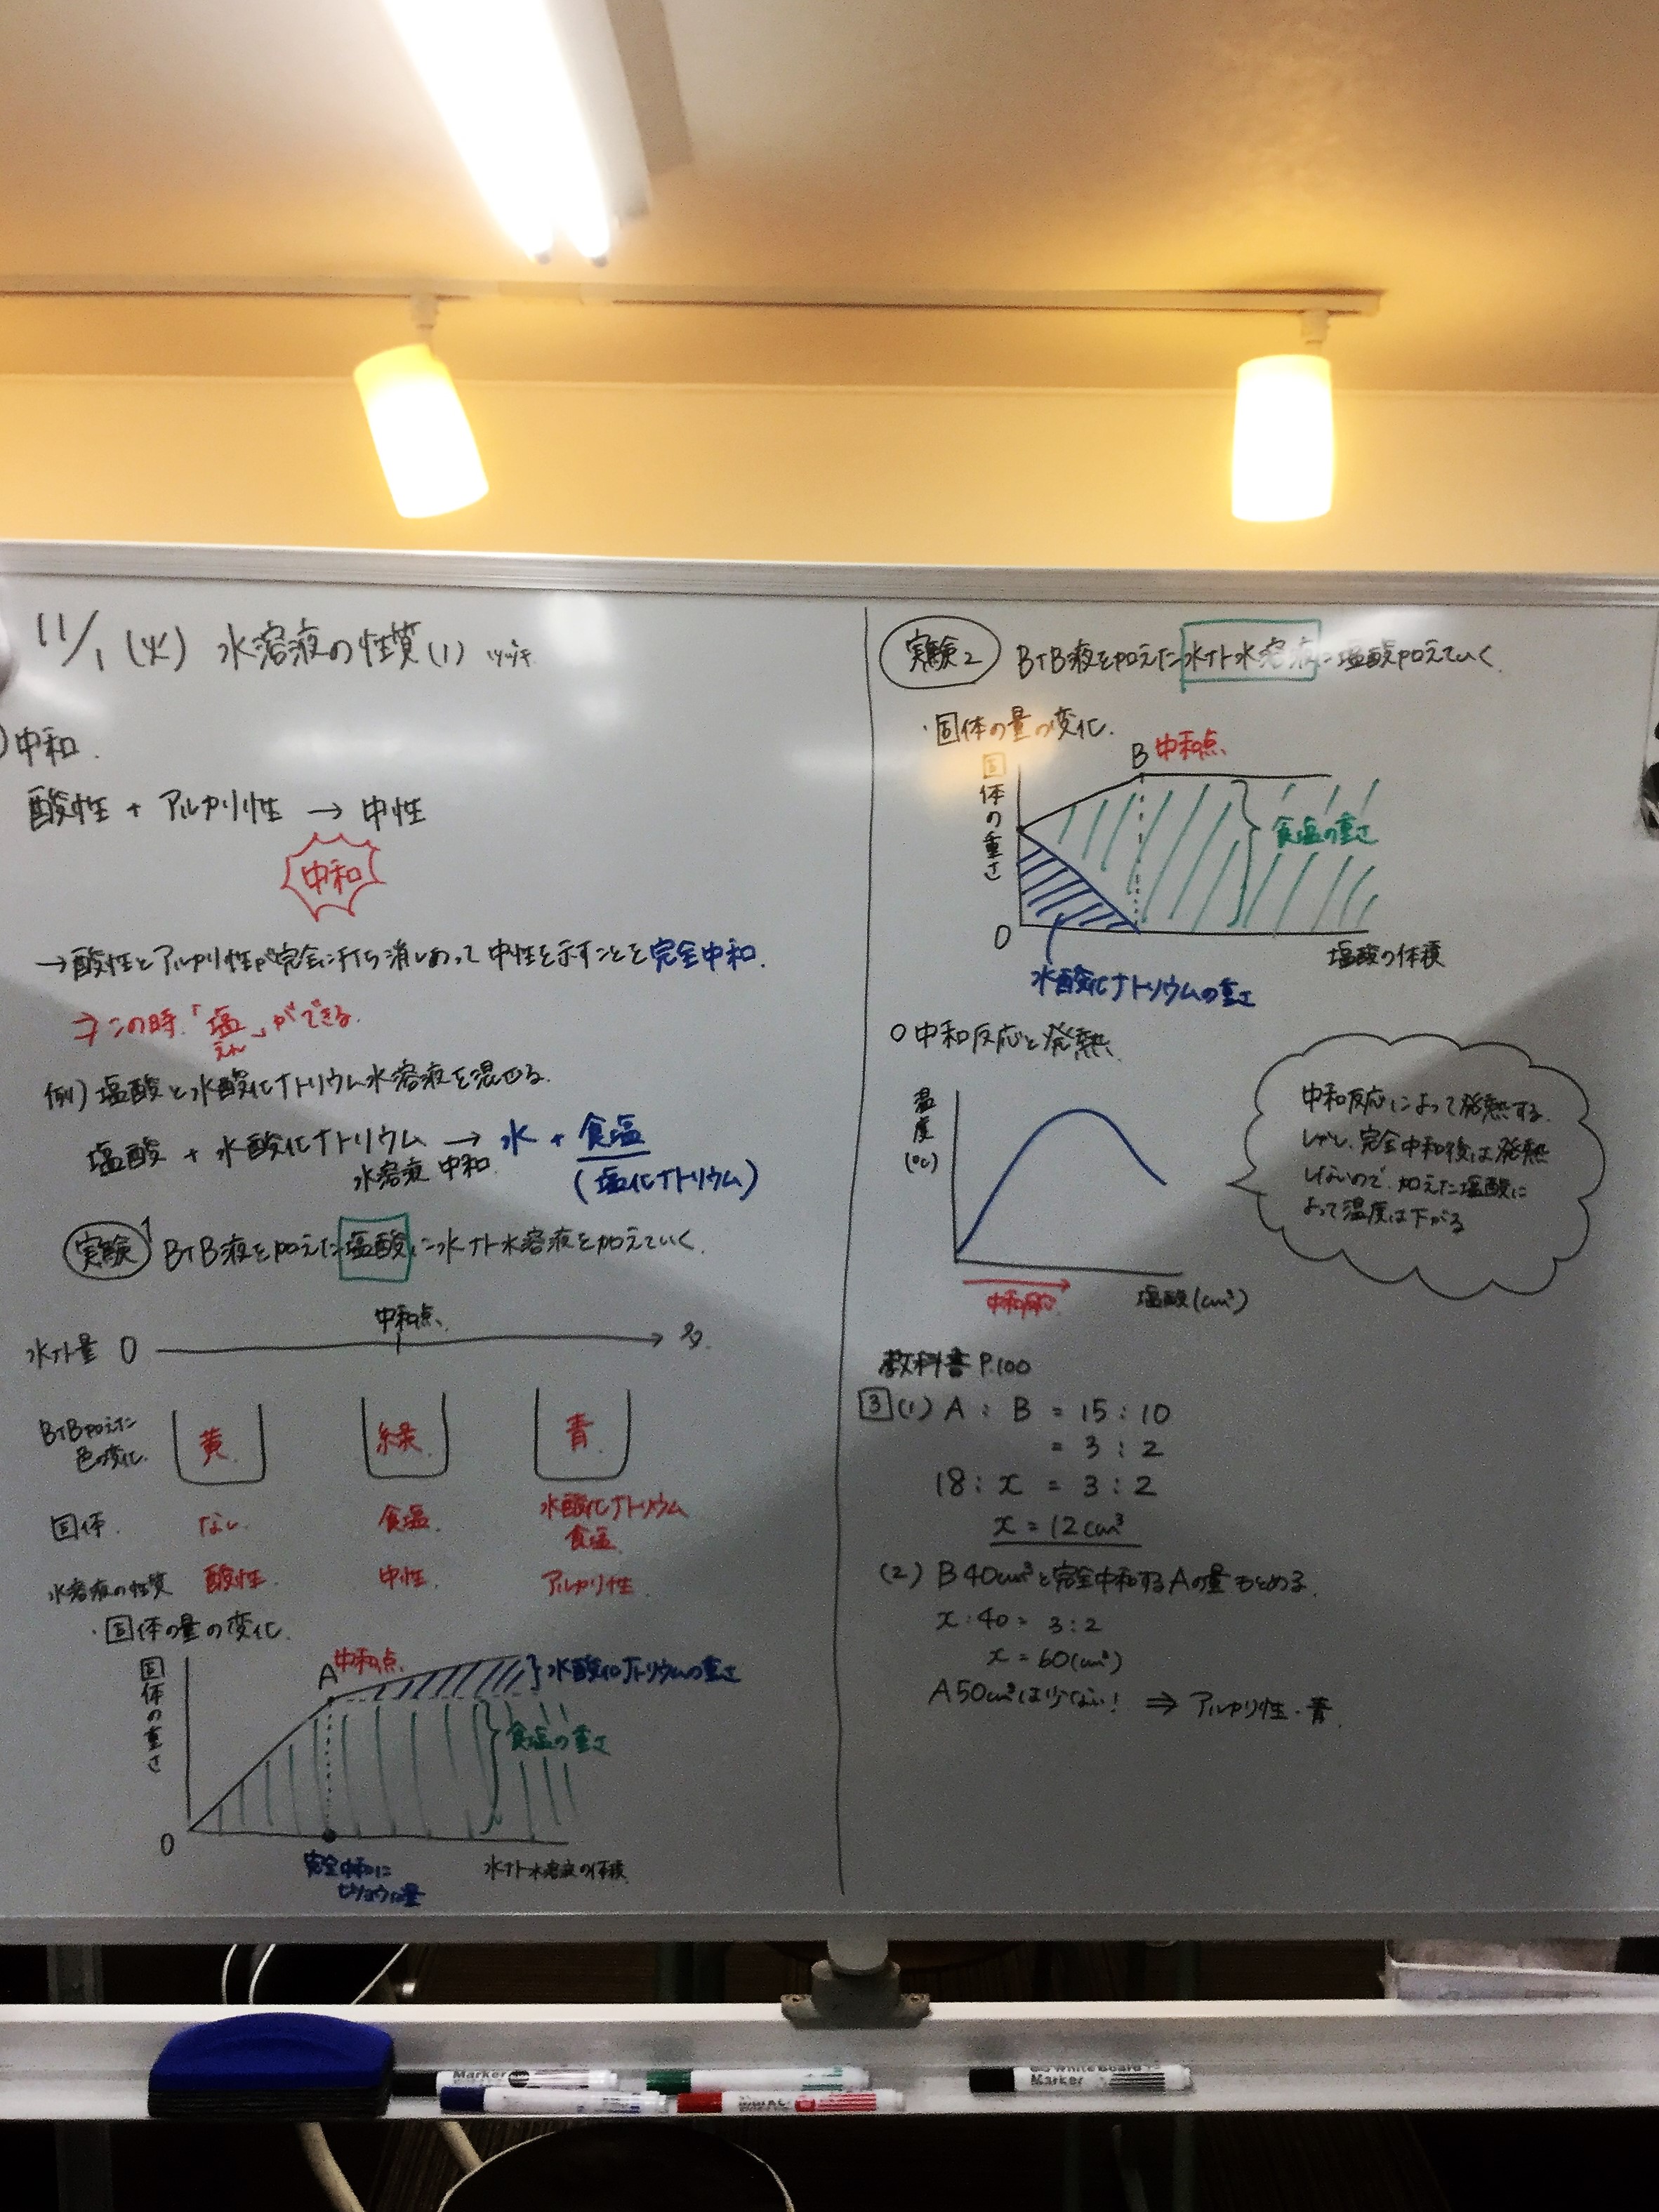 11/1 (火) 水溶液の性質(1) ツヅキ
)中和
酸性 + アルカリ性 → 中性
中和
→酸性とアルカリ性が完全に打ち消しあって中性を示すことを完全中和.
⇒この時.「塩」ができる.
えん
例) 塩酸と水酸化ナトリウム水溶液を混ぜる.
塩酸 + 水酸化ナトリウム → 水 + 食塩
水溶液 中和. (塩化ナトリウム)
実験1 BTB液を加えた塩酸に水ナト水溶液を加えていく.
中和点.
水ナト量 0 多.
BTB加えた
色の変化.
黄. 緑. 青.
固体. なし. 食塩. 水酸化ナトリウム
食塩.
水溶液の性質 酸性. 中性. アルカリ性.
・固体の量の変化.
固体の重さ
A 中和点.
水酸化ナトリウムの重さ
食塩の重さ
0
完全中和に
ヒツヨウな量
水ナト水溶液の体積
実験2 BTB液を加えた水ナト水溶液に塩酸加えていく
・固体の量の変化.
固体の重さ
B 中和点.
食塩の重さ
0
塩酸の体積
水酸化ナトリウムの重さ
○中和反応と発熱.
温度(℃)
中和反応.
塩酸(cm³)
中和反応によって発熱する.
しかし、完全中和後は発熱
しないので、加えた塩酸に
よって温度は下がる
教科書 P.100
3 (1) A : B = 15 : 10
= 3 : 2
18 : x = 3 : 2
x = 12cm³
(2) B40cm³と完全中和するAの量もとめる.
x : 40 = 3 : 2
x = 60(cm³)
A50cm³は少ない! ⇒ アルカリ性・青.
Marker
White Board
Marker